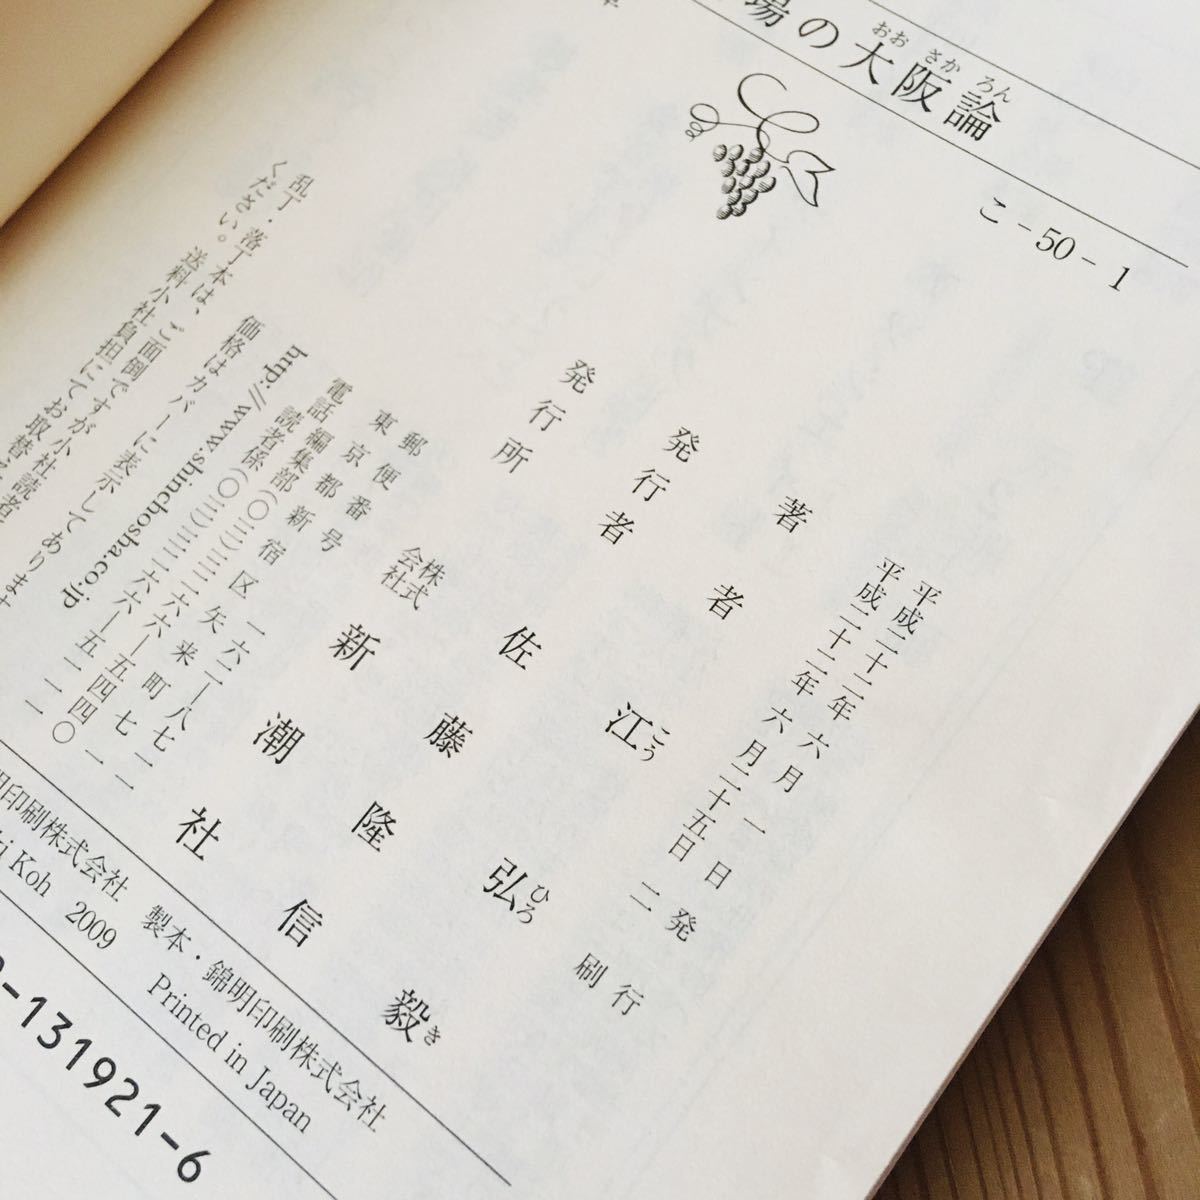 場の大阪論
おおさかろん
こ-50-1
平成二十二年六月一日発行
平成二十二年六月二十五日二刷
著者 江弘毅
こう ひろ き
発行者 佐藤隆信
発行所 株式会社 新潮社
郵便番号 一六二―八七一一
東京都新宿区矢来町七一
電話 編集部(〇三)三二六六―五四四〇
読者係(〇三)三二六六―五一一一
http://www.shinchosha.co.jp
価格はカバーに表示してあります
乱丁・落丁本は、ご面倒ですが小社読者
ください。送料小社負担にてお取替
明印刷株式会社 製本・錦明印刷株式会社
Koh 2009 Printed in Japan
-131921-6